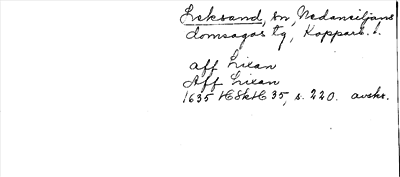 Leksand, sn, Nedansiljans
domsagas tg, Kopparb. l.
aff Lixan
Aff Lixan
1635 HSkH 35, s. 220. avskr.